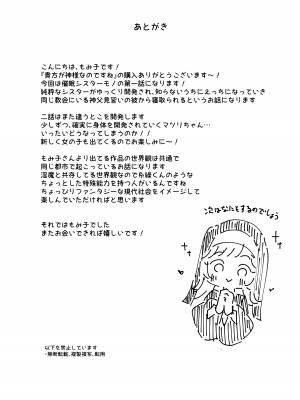 あとがき
こんにちは、もみ子です。
『貴方が神様なのですね』の購入ありがとうございます～！
今回は催眠シスターモノの第一話になります
純粋なシスターがゆっくり開発され、知らないうちにえっちになっていき
同じ教会にいる神父見習いの彼から寝取られるというお話になります
二話はまた違うとこを開発します
少しずつ、確実に身体を開発されていくマツリちゃん…
いったいどうなってしまうのか！！
新しく女の子も出てくるのでお楽しみに～！
もみ子さんより出てる作品の世界観は共通で
同じ都市で起こっているお話になります
淫魔と共存してる世界観なので糸繰くんのような
ちょっとした特殊能力を持つ人がいるんですね
ちょっぴりファンタジーな現代社会をイメージして
楽しんでいただければと思います
それではもみ子でした
またお会いできれば嬉しいです！
次はなにをするのでしょう
以下を禁止しています
・無断転載、複製複写、転用